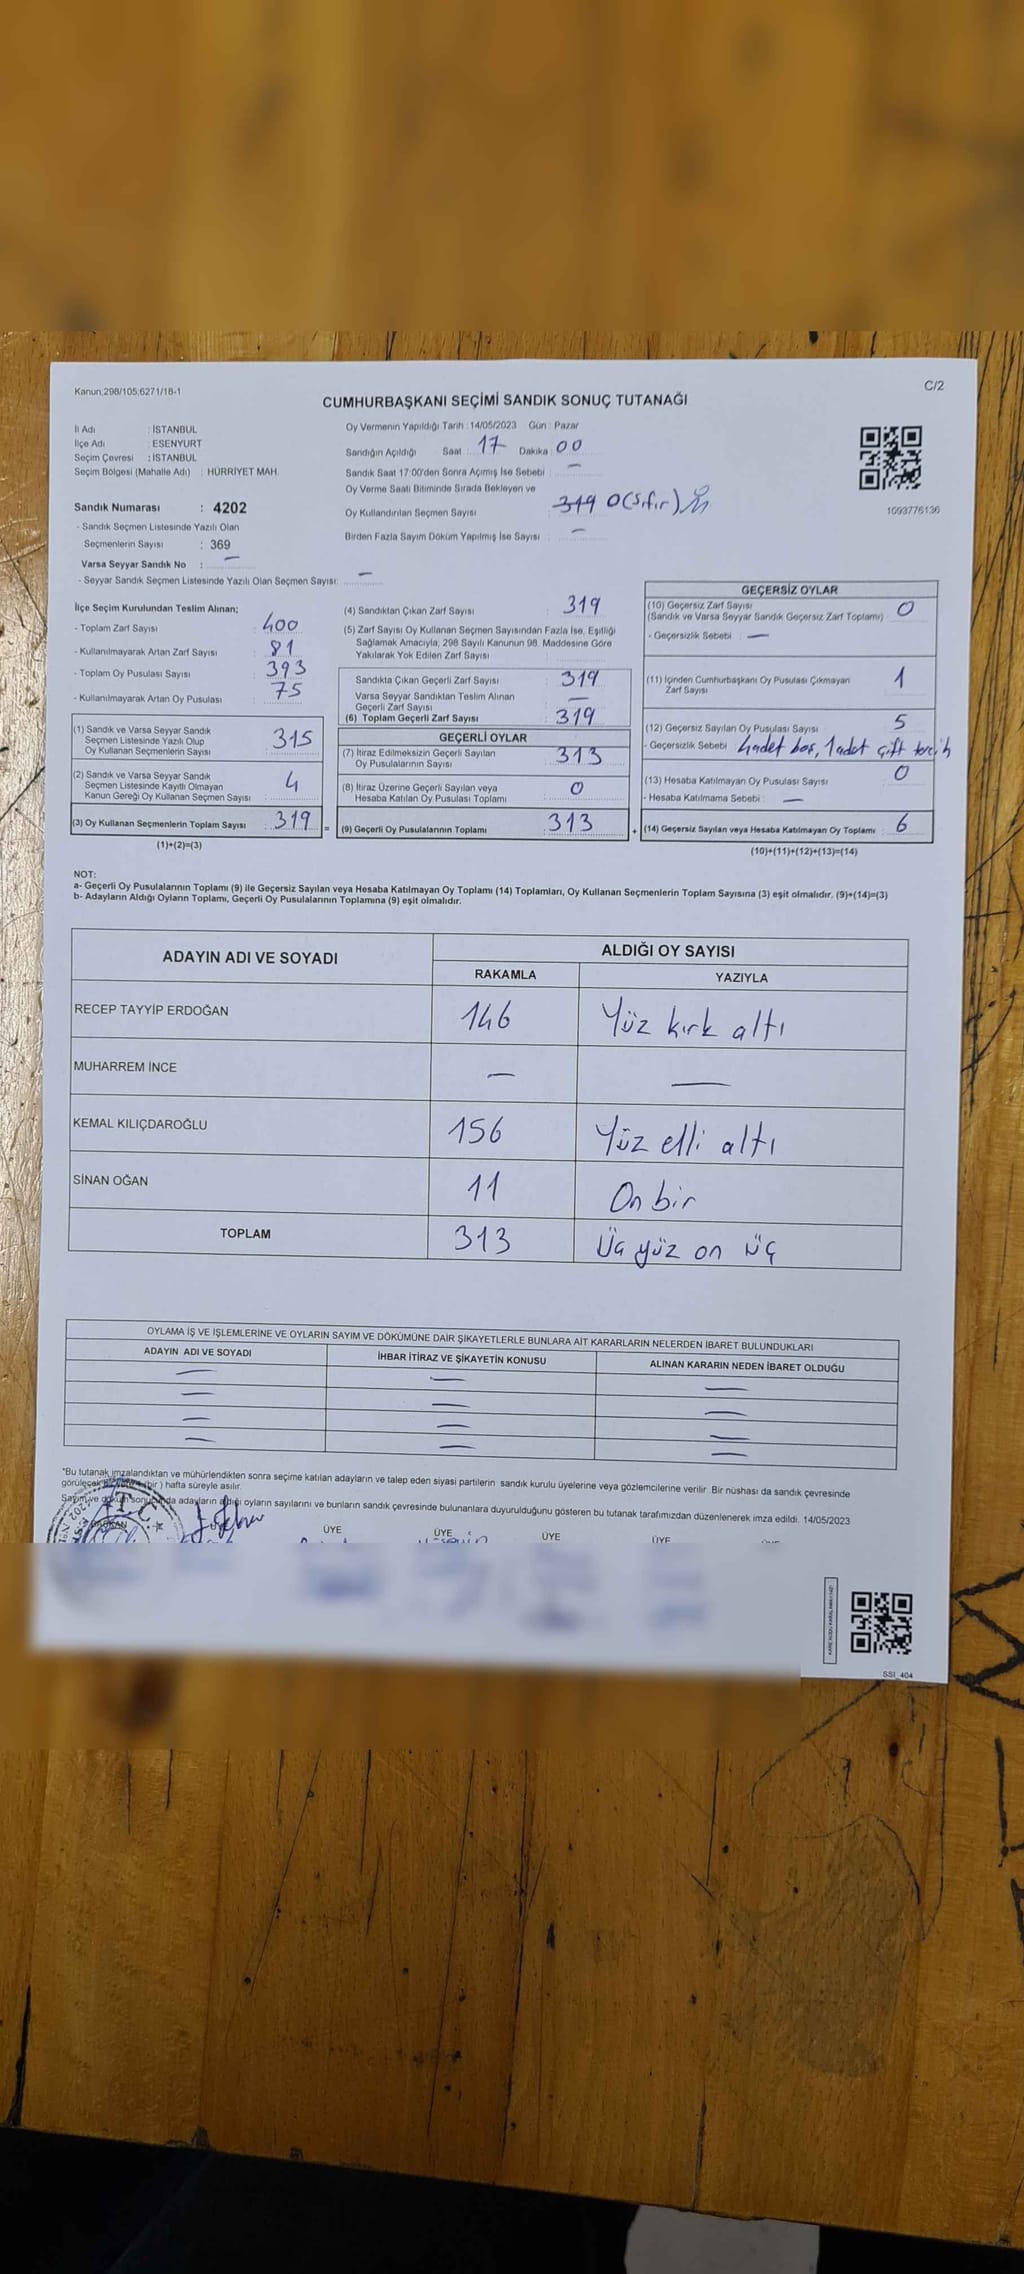 Kanun;298/105;6271/18-1
C/2
CUMHURBAŞKANI SEÇİMİ SANDIK SONUÇ TUTANAĞI
İl Adı : İSTANBUL
İlçe Adı : ESENYURT
Seçim Çevresi : İSTANBUL
Seçim Bölgesi (Mahalle Adı) : HÜRRİYET MAH.
Sandık Numarası : 4202
- Sandık Seçmen Listesinde Yazılı Olan
Seçmenlerin Sayısı : 369
Varsa Seyyar Sandık No : —
- Seyyar Sandık Seçmen Listesinde Yazılı Olan Seçmen Sayısı: —
Oy Vermenin Yapıldığı Tarih : 14/05/2023 Gün : Pazar
Sandığın Açıldığı Saat : 17 Dakika : 00
Sandık Saat 17:00'den Sonra Açımış İse Sebebi : —
Oy Verme Saati Bitiminde Sırada Bekleyen ve
Oy Kullandırılan Seçmen Sayısı : 319 0 (Sıfır)
Birden Fazla Sayım Döküm Yapılmış İse Sayısı : —
1093776136
İlçe Seçim Kurulundan Teslim Alınan;
- Toplam Zarf Sayısı : 400
- Kullanılmayarak Artan Zarf Sayısı : 81
- Toplam Oy Pusulası Sayısı : 393
- Kullanılmayarak Artan Oy Pusulası : 75
(1) Sandık ve Varsa Seyyar Sandık
Seçmen Listesinde Yazılı Olup
Oy Kullanan Seçmenlerin Sayısı : 315
(2) Sandık ve Varsa Seyyar Sandık
Seçmen Listesinde Kayıtlı Olmayan
Kanun Gereği Oy Kullanan Seçmen Sayısı : 4
(3) Oy Kullanan Seçmenlerin Toplam Sayısı : 319 =
(1)+(2)=(3)
(4) Sandıktan Çıkan Zarf Sayısı : 319
(5) Zarf Sayısı Oy Kullanan Seçmen Sayısından Fazla İse, Eşitliği
Sağlamak Amacıyla; 298 Sayılı Kanunun 98. Maddesine Göre
Yakılarak Yok Edilen Zarf Sayısı
Sandıkta Çıkan Geçerli Zarf Sayısı : 319
Varsa Seyyar Sandıktan Teslim Alınan
Geçerli Zarf Sayısı : —
(6) Toplam Geçerli Zarf Sayısı : 319
GEÇERLİ OYLAR
(7) İtiraz Edilmeksizin Geçerli Sayılan
Oy Pusulalarının Sayısı : 313
(8) İtiraz Üzerine Geçerli Sayılan veya
Hesaba Katılan Oy Pusulası Toplamı : 0
(9) Geçerli Oy Pusulalarının Toplamı : 313 +
GEÇERSİZ OYLAR
(10) Geçersiz Zarf Sayısı
(Sandık ve Varsa Seyyar Sandık Geçersiz Zarf Toplamı) : 0
- Geçersizlik Sebebi : —
(11) İçinden Cumhurbaşkanı Oy Pusulası Çıkmayan
Zarf Sayısı : 1
(12) Geçersiz Sayılan Oy Pusulası Sayısı : 5
- Geçersizlik Sebebi : 4 adet boş, 1 adet çift tercih
(13) Hesaba Katılmayan Oy Pusulası Sayısı : 0
- Hesaba Katılmama Sebebi : —
(14) Geçersiz Sayılan veya Hesaba Katılmayan Oy Toplamı : 6
(10)+(11)+(12)+(13)=(14)
NOT:
a- Geçerli Oy Pusulalarının Toplamı (9) ile Geçersiz Sayılan veya Hesaba Katılmayan Oy Toplamı (14) Toplamları, Oy Kullanan Seçmenlerin Toplam Sayısına (3) eşit olmalıdır. (9)+(14)=(3)
b- Adayların Aldığı Oyların Toplamı, Geçerli Oy Pusulalarının Toplamına (9) eşit olmalıdır.
ADAYIN ADI VE SOYADI ALDIĞI OY SAYISI
RAKAMLA YAZIYLA
RECEP TAYYİP ERDOĞAN 146 Yüz kırk altı
MUHARREM İNCE — —
KEMAL KILIÇDAROĞLU 156 Yüz elli altı
SİNAN OĞAN 11 On bir
TOPLAM 313 Üç yüz on üç
OYLAMA İŞ VE İŞLEMLERİNE VE OYLARIN SAYIM VE DÖKÜMÜNE DAİR ŞİKAYETLERLE BUNLARA AİT KARARLARIN NELERDEN İBARET BULUNDUKLARI
ADAYIN ADI VE SOYADI İHBAR İTİRAZ VE ŞİKAYETİN KONUSU ALINAN KARARIN NEDEN İBARET OLDUĞU
— — —
— — —
— — —
— — —
*Bu tutanak imzalandıktan ve mühürlendikten sonra seçime katılan adayların ve talep eden siyasi partilerin sandık kurulu üyelerine veya gözlemcilerine verilir. Bir nüshası da sandık çevresinde
(bir) hafta süreyle asılır.
Sayım ve döküm sonucunda adayların aldığı oyların sayılarını ve bunların sandık çevresinde bulunanlara duyurulduğunu gösteren bu tutanak tarafımızdan düzenlenerek imza edildi. 14/05/2023
T.C.
ÜYE ÜYE ÜYE ÜYE
SSI_404